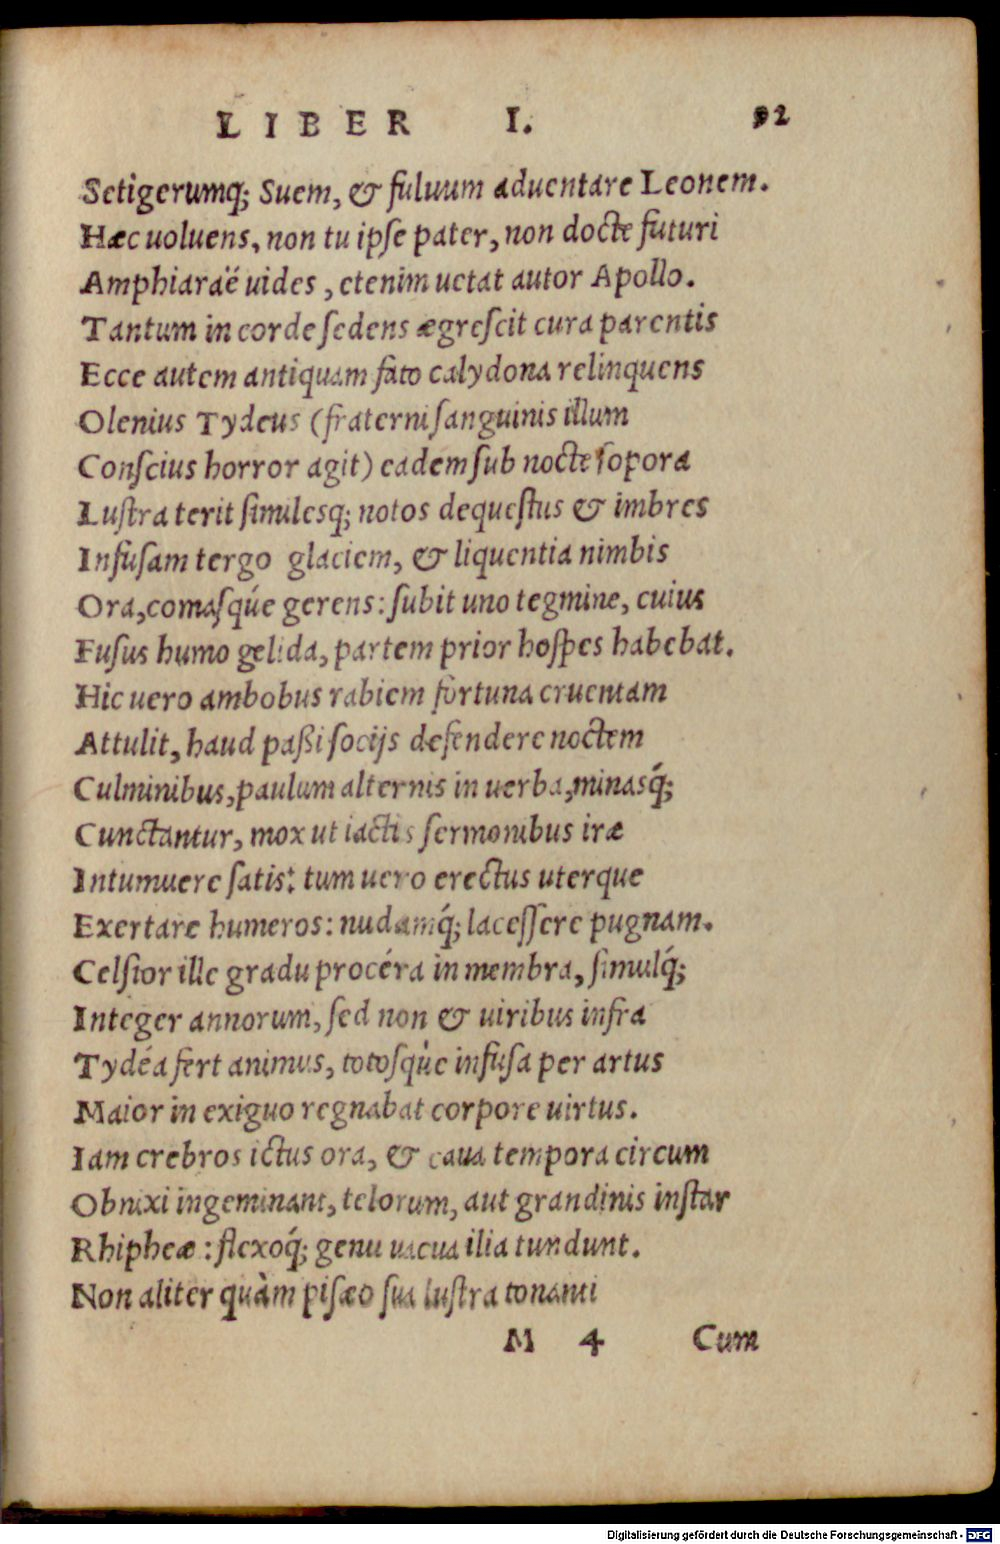 LIBER I. 92
Setigerumq́; Suem, & fuluum aduentare Leonem.
Hæc uoluens, non tu ipſe pater, non docte futuri
Amphiaraë uides, etenim uetat autor Apollo.
Tantum in corde ſedens ægreſcit cura parentis
Ecce autem antiquam fato calydona relinquens
Olenius Tydeus (fraterni ſanguinis illum
Conſcius horror agit) eadem ſub nocte ſopora
Luſtra terit ſimilesq; notos dequeſtus & imbres
Infuſam tergo glaciem, & liquentia nimbis
Ora, comaſqúe gerens: ſubit uno tegmine, cuius
Fuſus humo gelida, partem prior hoſpes habebat.
Hic uero ambobus rabiem fortuna cruentam
Attulit, haud paßi ſocijs defendere noctem
Culminibus, paulum alternis in uerba, minasq́;
Cunctantur, mox ut iactis ſermonibus iræ
Intumuere ſatis: tum uero erectus uterque
Exertare humeros: nudamq́; laceſſere pugnam.
Celſior ille gradu procéra in membra, ſimulq́;
Integer annorum, ſed non & uiribus infra
Tydéa fert animus, totoſqùe infuſa per artus
Maior in exiguo regnabat corpore uirtus.
Iam crebros ictus ora, & caua tempora circum
Obnixi ingeminant, telorum, aut grandinis inſtar
Rhipheæ: flexoq́; genu uacua ilia tundunt.
Non aliter quàm piſæo ſua luſtra tonanti
M 4 Cum
Digitalisierung gefördert durch die Deutsche Forschungsgemeinschaft - DFG